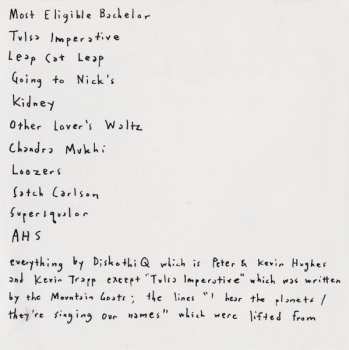 Most Eligible Bachelor
Tulsa Imperative
Leap Cat Leap
Going to Nick's
Kidney
Other Lover's Waltz
Chandra Mukhi
Loozers
Satch Carlson
Supersqualor
AHS
everything by DiskothiQ which is Peter & Kevin Hughes
and Kevin Trapp except "Tulsa Imperative" which was written
by the Mountain Goats; the lines "I hear the planets/
they're singing our names" which were lifted from